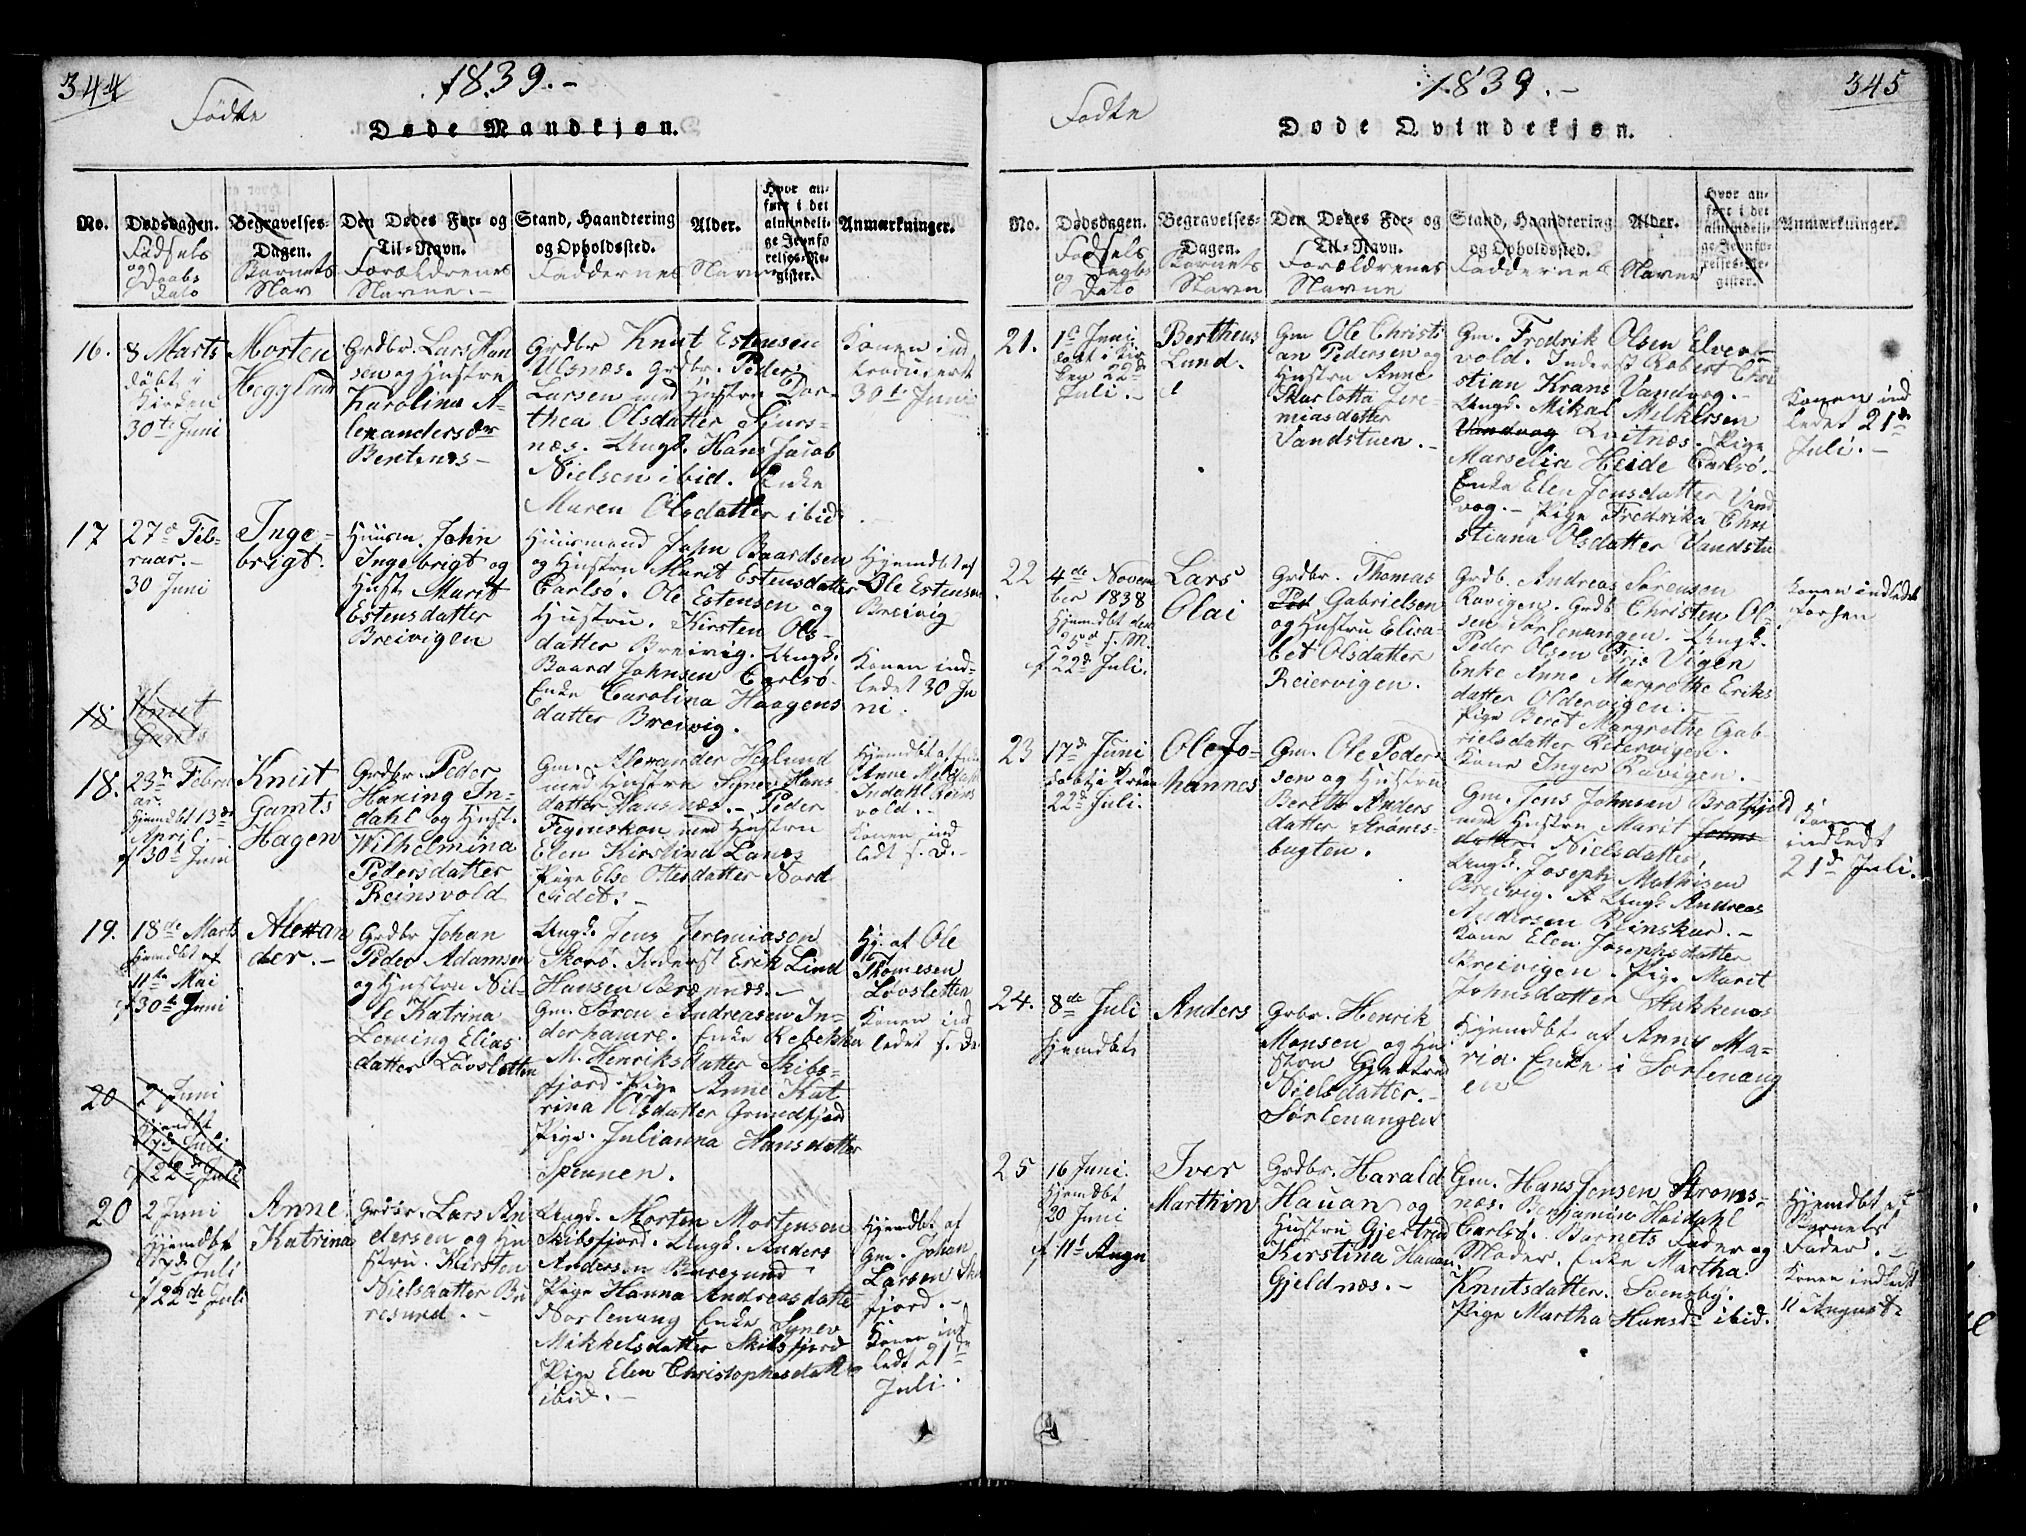 344
1839.-
Fødte
Døde Mandkjøn.
No.
Dødsdagen.
Fødsels
og
Daabs
Dato
Begravelses-
Dagen.
Barnets
Nav
Den Dødes For- og
Til-Navn.
Forældrenes
Navne.-
Stand, Haandtering
og Opholdssted.
Faddernes
Alder.
Navne
Hvor an-
ført i det
almindeli-
ge Jevnfø
relses-Re-
gister.
Anmærkninger.
16.
8 Marts
døbt i
Kirken
30te Juni
Morten
Hegglund
Grdbr. Lars Han
sen og Hustru
Karolina A-
lexandersdr
Bentnes-
Grdbr Knut Estensen
Ulsnæs. Grdbr. Peder
Larsen med Hustru Dor-
thea Olsdatter Sjurs-
næs. Ungk. Hans Jacob
Nielsen ibid. Enke
Maren Olsdatter ibid
Konen ind
troduceret
30te Juni
17
27de Feb-
ruar.-
30 Juni
Inge-
brigt.
Huusm. John
Ingebrigt og
Hust. Marit
Estensdatter
Breivigen
Huusmand John Baardsen
og Hustru Marit Estensdatter
Carlsö. Ole Estensen og
Hustru. Kirsten Ols-
datter Breivig. Ungk.
Baard Johnsen Carlsö.
Enke Carolina Haagens
datter Breivig.
Hjemdbt af
Ole Estensen
Breivig
Konen ind-
ledet 30 Ju
ni.
18
Knut
Gamts
18.
23de Febru
ar.
Hjemdbt 13de
April.-
f 30t Juni
Knut
Gamts
Hagen
Grdbr. Peder
Haning In-
dahl og Hust.
Wilhelmina
Pedersdatter
Reinsvold
Gm. Alexander Heglund
med Hustru Synev Hans
datter Hansnæs.- Peder
Figenskou med Hustru
Elen Kirstina Lanes
Pige Else Ottesdatter Nord
eidet.-
Hjemdbt af Enke
Anne
Indahl Reins
vold.-
Konen ind
ledt s. D.-
19.
18de Marts
Hjemdbt
11te Mai
f 30te Juni
Alexan
der.-
Grdbr Johan
Peder Adamsen
og Hustru Nil-
le Katrina
Leming Elias
datter Lövsletten
Ungk. Jens Jeremiasen
Skorö. Inderst Erik Lind
Hansen Brænnes.-
Gm. Sören Andreasen In-
derhamre. Enke Rebekka
M. Henriksdatter Skibs-
fjord. Pige Anne Kat
rina Olsdatter Grundfjord
Pige. Julianna Hansdatter
Spennen.
Hj. af Ole
Thomesen
Lövsletten
Konen ind
ledet s. D.
20
2 Juni
Hjemdbt
7de Juli
f 22de Juli
20
2 Juni
Hjemdbt
7de Juli
f 22de Juli
Anne
Katrina
Grdbr. Lars An
dersen og Hu
stru. Kirsten
Nielsdatter Bu
resund.-
Ungk. Morten Mortensen
Skibsfjord. Ungk. Anders
Andersen Buresund
Pige Hanna Andreasdatte
Norlenang Enke Synev
Mikkelsdatter Skibsfjord
Pige Elen Christophersdatte
ibid.-
Hjemdbt af
Gm. Johan
Larsen Ski
fjord.-
Konen ind
ledt 21de
Juli.
1839.-
345
Fødte
Døde Qvindekjøn.
No.
Dødsdagen.
Fødsels
og Daabs
Dato
Begravelses-
Dagen.
Barnets
Navn
Den Dødes For- og
Til-Navn.
Forældrenes
Navne
Stand, Haandtering
og Opholdssted.
Faddernes
Alder.
Navne
Hvor an-
ført i det
almindeli-
ge Jevnfø-
relses-Re-
gister.
Anmærkninger.
21.
1te Juni
döbt i Kir
ken 22de
Juli.-
Bertheus
Lund.
Gm Ole Christi
an Pedersen og
Hustru Anne
Skarlotta Jere-
miasdatter
Vandstuen.-
Gm. Fredrik Olsen Elve-
vold. Inderst Robert Chri
stian Krans Vandvog.-
Ungk. Mikal Mikkelsen
Vandvog Kvitnæs. Pige
Marselia Heide Carlsö.-
Enke Elen Jonsdatter Vand
vog.- Pige Fredrika Chri
stiana Olsdatter Vandstu
Konen ind
ledet 21de
Juli.-
22
4de Novem
ber 1838
Hjemdbt den
25de s. M.
f 22de Juli.
Lars
Olai
Grdbr. Thomas
Ped Gabrielsen
og Hustru Elisa-
bet Olsdatter
Reiervigen.
Grdb. Andreas Sörensen
Ravigen. Grdb Christen Ol-
sen Sörlenangen. Ungk.
Peder Olsen Vigen
Enke Anne Margrethe Eriks
datter Oldervigen.
Pige Beret Margrethe Gab-
rielsdatter Reiervigen.
Kone Inger Ravigen.
Konen indledet
forhen
23
17de Juni
döbt i Kirken
22de Juli.
Ole Jo-
hannes
Gm. Ole Peder-
sen og Hustru
Berith Anders
datter Ströms-
bugten.
Gm. Jens Johnsen Bratfjeld
med Hustru Marit Johns-
datter Nielsdatter,
Ungk. Joseph Mathisen
Breivig. A Ungk Andreas
Andersen Reinskar.-
Kone Elen Josephsdatter
Breivigen. Pige Marit
Johnsdatter Stakkenes
Konen
indledt
21de Juli.
24.
8de Juli
Hjemdbt
Anders
Grbr. Henrik
Monsen og Hu
stru Gjertrud
Nielsdatter.-
Sörlenangen
Hjemdbt af Anne Ma-
ria. Enke i Sörlenang
en
25
16 Juni.
Hjemdbt
20 Juni
f 11t Augu
Iver
Marthin
Grdbr. Harald
Hauan og
Hustru Gjertrud
Kirstina Hauan
Gjeldnæs.-
Gm. Hans Jensen Ströms-
næs. Benjamin Hoidahl
Carlsö. Barnets Fader og
Moder. Enke Martha
Knutsdatter. Somsby.
Pige Martha Hansdr ibid.
Hjemdbt af
Barnets
Fader.-
Konen indledt
11 August